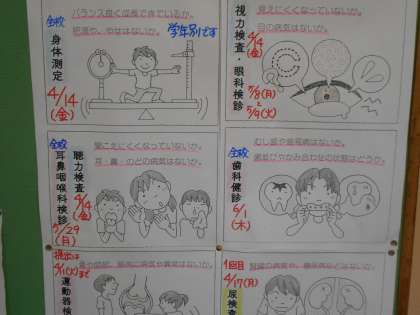 全校
身体測定
4/14
(金)
バランス良く成長できているか。
肥満や、やせはないか。
学年別です
視力検査・眼科検診
4/14
(金)
見えにくくなっていないか。
目の病気はないか。
5/8(月)
5/9(火)
全校
聴力検査
4/14
(金)
耳鼻咽喉科検診
5/29
(月)
聞こえにくくなっていないか。
耳・鼻・のどの病気はないか。
全校
歯科健診
6/1
(木)
むし歯や歯周病はないか。
歯並びやかみ合わせの状態はどうか。
提出は
4/11(火)まで
運動器検
1回目
4/17(月)
尿検査
腎臓の病気や、糖尿病などはないか。